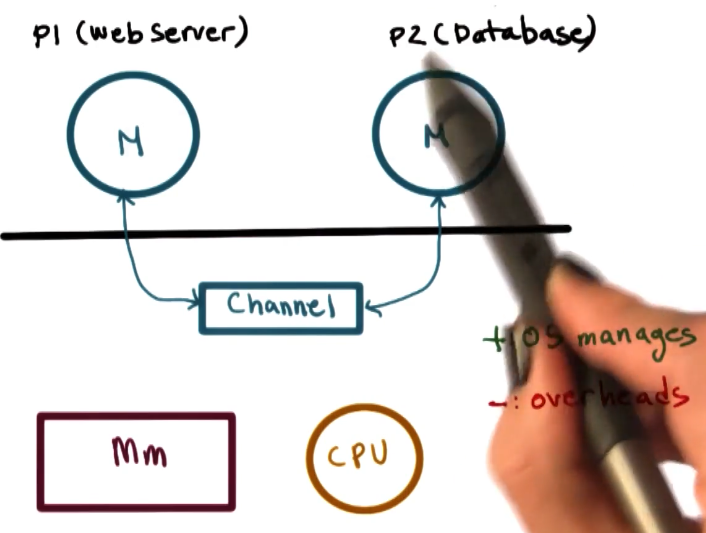 P1 (Web Server)
P2 (Database)
M
M
Channel
+: OS manages
-: overheads
Mm
CPU